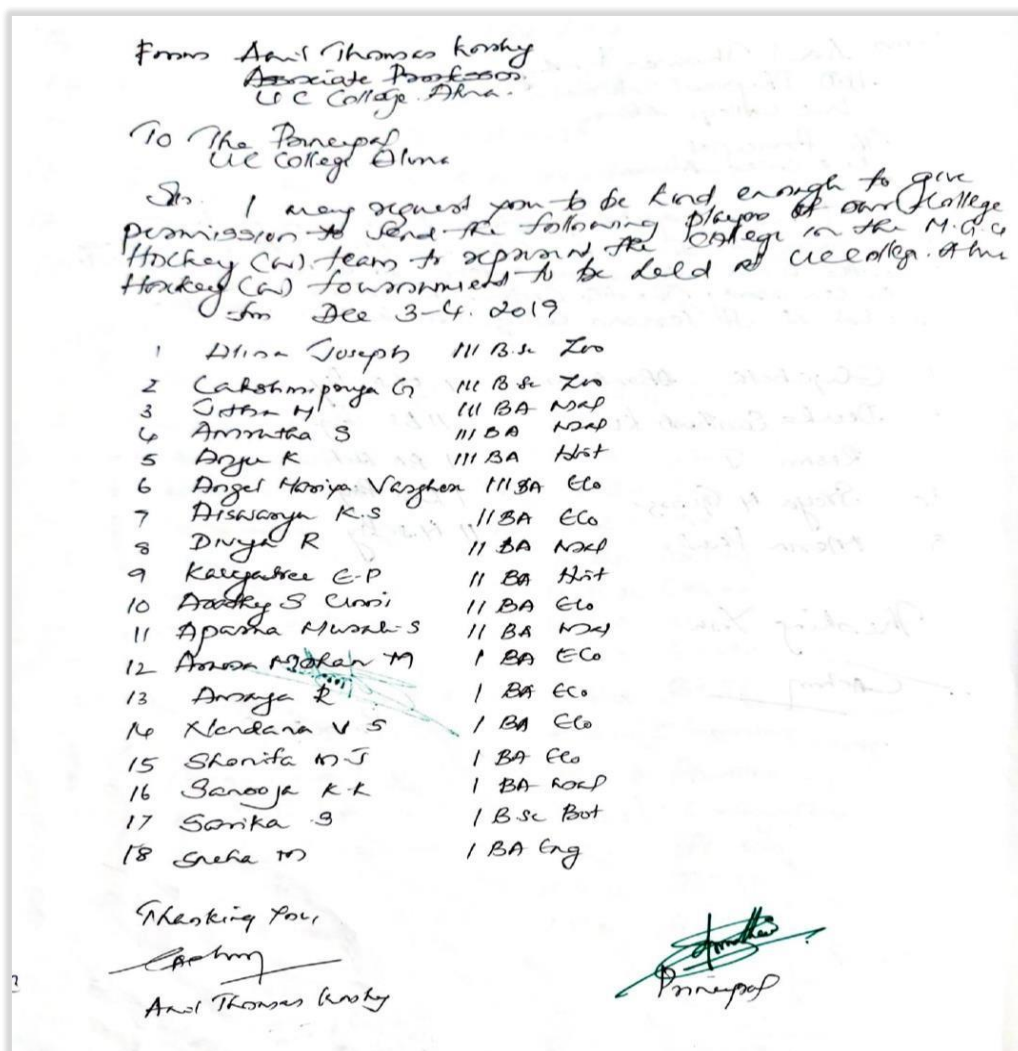 From Anil Thomas Koshy
Associate Professor
UC College Aluva.
To The Principal
UC College Aluva
Sir. I may request you to be kind enough to give
permission to send the following players of our College
Hockey (W) team to represent the College in the M.G.U
Hockey (W) tournament to be held at UC College. Aluva
from Dec 3-4. 2019
1 Alina Joseph III B.Sc Zoo
2 Lakshmipriya G III B Sc Zoo
3 M III BA
4 Amrutha S III BA
5 Anju K III BA Hist
6 Angel Mariya Varghese III BA Eco
7 Aiswarya K.S II BA Eco
8 Divya R II BA
9 E.P II BA Hist
10 S Unni II BA Eco
11 Aparna Murali S II BA
12 Mohan M I BA Eco
13 R I BA Eco
14 Nandana V S I BA Eco
15 Shanifa M J I BA Eco
16 Sanooja K.K I BA
17 Sarika S I B Sc Bot
18 Sneha M I BA Eng
Thanking You,
Anil Thomas Koshy
Principal